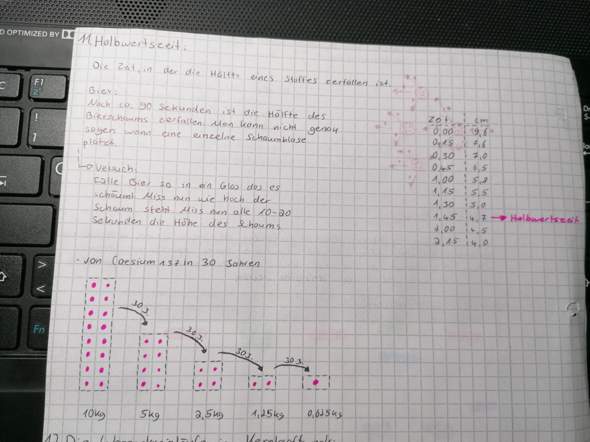 D OPTIMIZED BY
F1
!
1
>
<
Fn
11. Halbwertszeit.
Die Zeit, in der die Hälfte eines Stoffes zerfallen ist.
Bier:
Nach ca. 90 Sekunden ist die Hälfte des
Bierschaums zerfallen. Man kann nicht genau
sagen wann eine einzelne Schaumblase
platzt.
Versuch:
Fülle Bier so in ein Glas das es
schäumt. Miss nun wie hoch der
Schaum steht. Miss nun alle 10-20
Sekunden die Höhe des Schaums
Zeit cm
0,00 9,6
0,15 7,6
0,30 7,0
0,45 6,5
1,00 5,8
1,15 5,5
1,30 5,0
1,45 4,7 → Halbwertszeit
2,00 4,5
2,15 4,0
- von Caesium 137 in 30 Jahren
30J. 30J. 30J. 30J.
10kg 5kg 2,5kg 1,25kg 0,625kg
12. Die